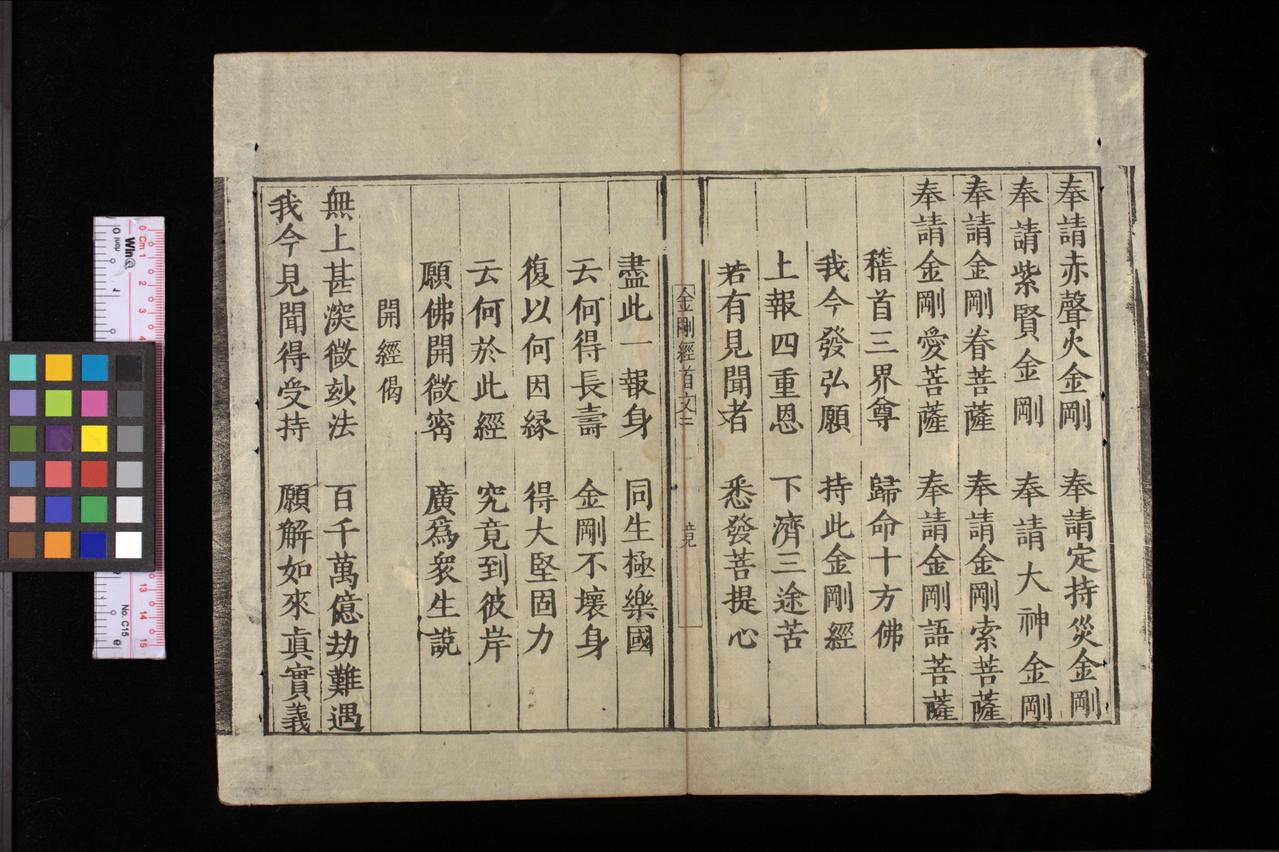 奉請赤聲火金剛　奉請定持災金剛
奉請紫賢金剛　奉請大神金剛
奉請金剛眷菩薩　奉請金剛索菩薩
奉請金剛愛菩薩　奉請金剛語菩薩
稽首三界尊　歸命十方佛
我今發弘願　持此金剛經
上報四重恩　下濟三途苦
若有見聞者　悉發菩提心
金剛經首文三
竟
盡此一報身　同生極樂國
云何得長壽　金剛不壞身
復以何因縁　得大堅固力
云何於此經　究竟到彼岸
願佛開微宻　廣爲衆生説
開經偈
無上甚深微玅法　百千萬億劫難遇
我今見聞得受持　願解如來眞實義
Win@
No. C15
0 Cm 1 2 3 4
13 14 15